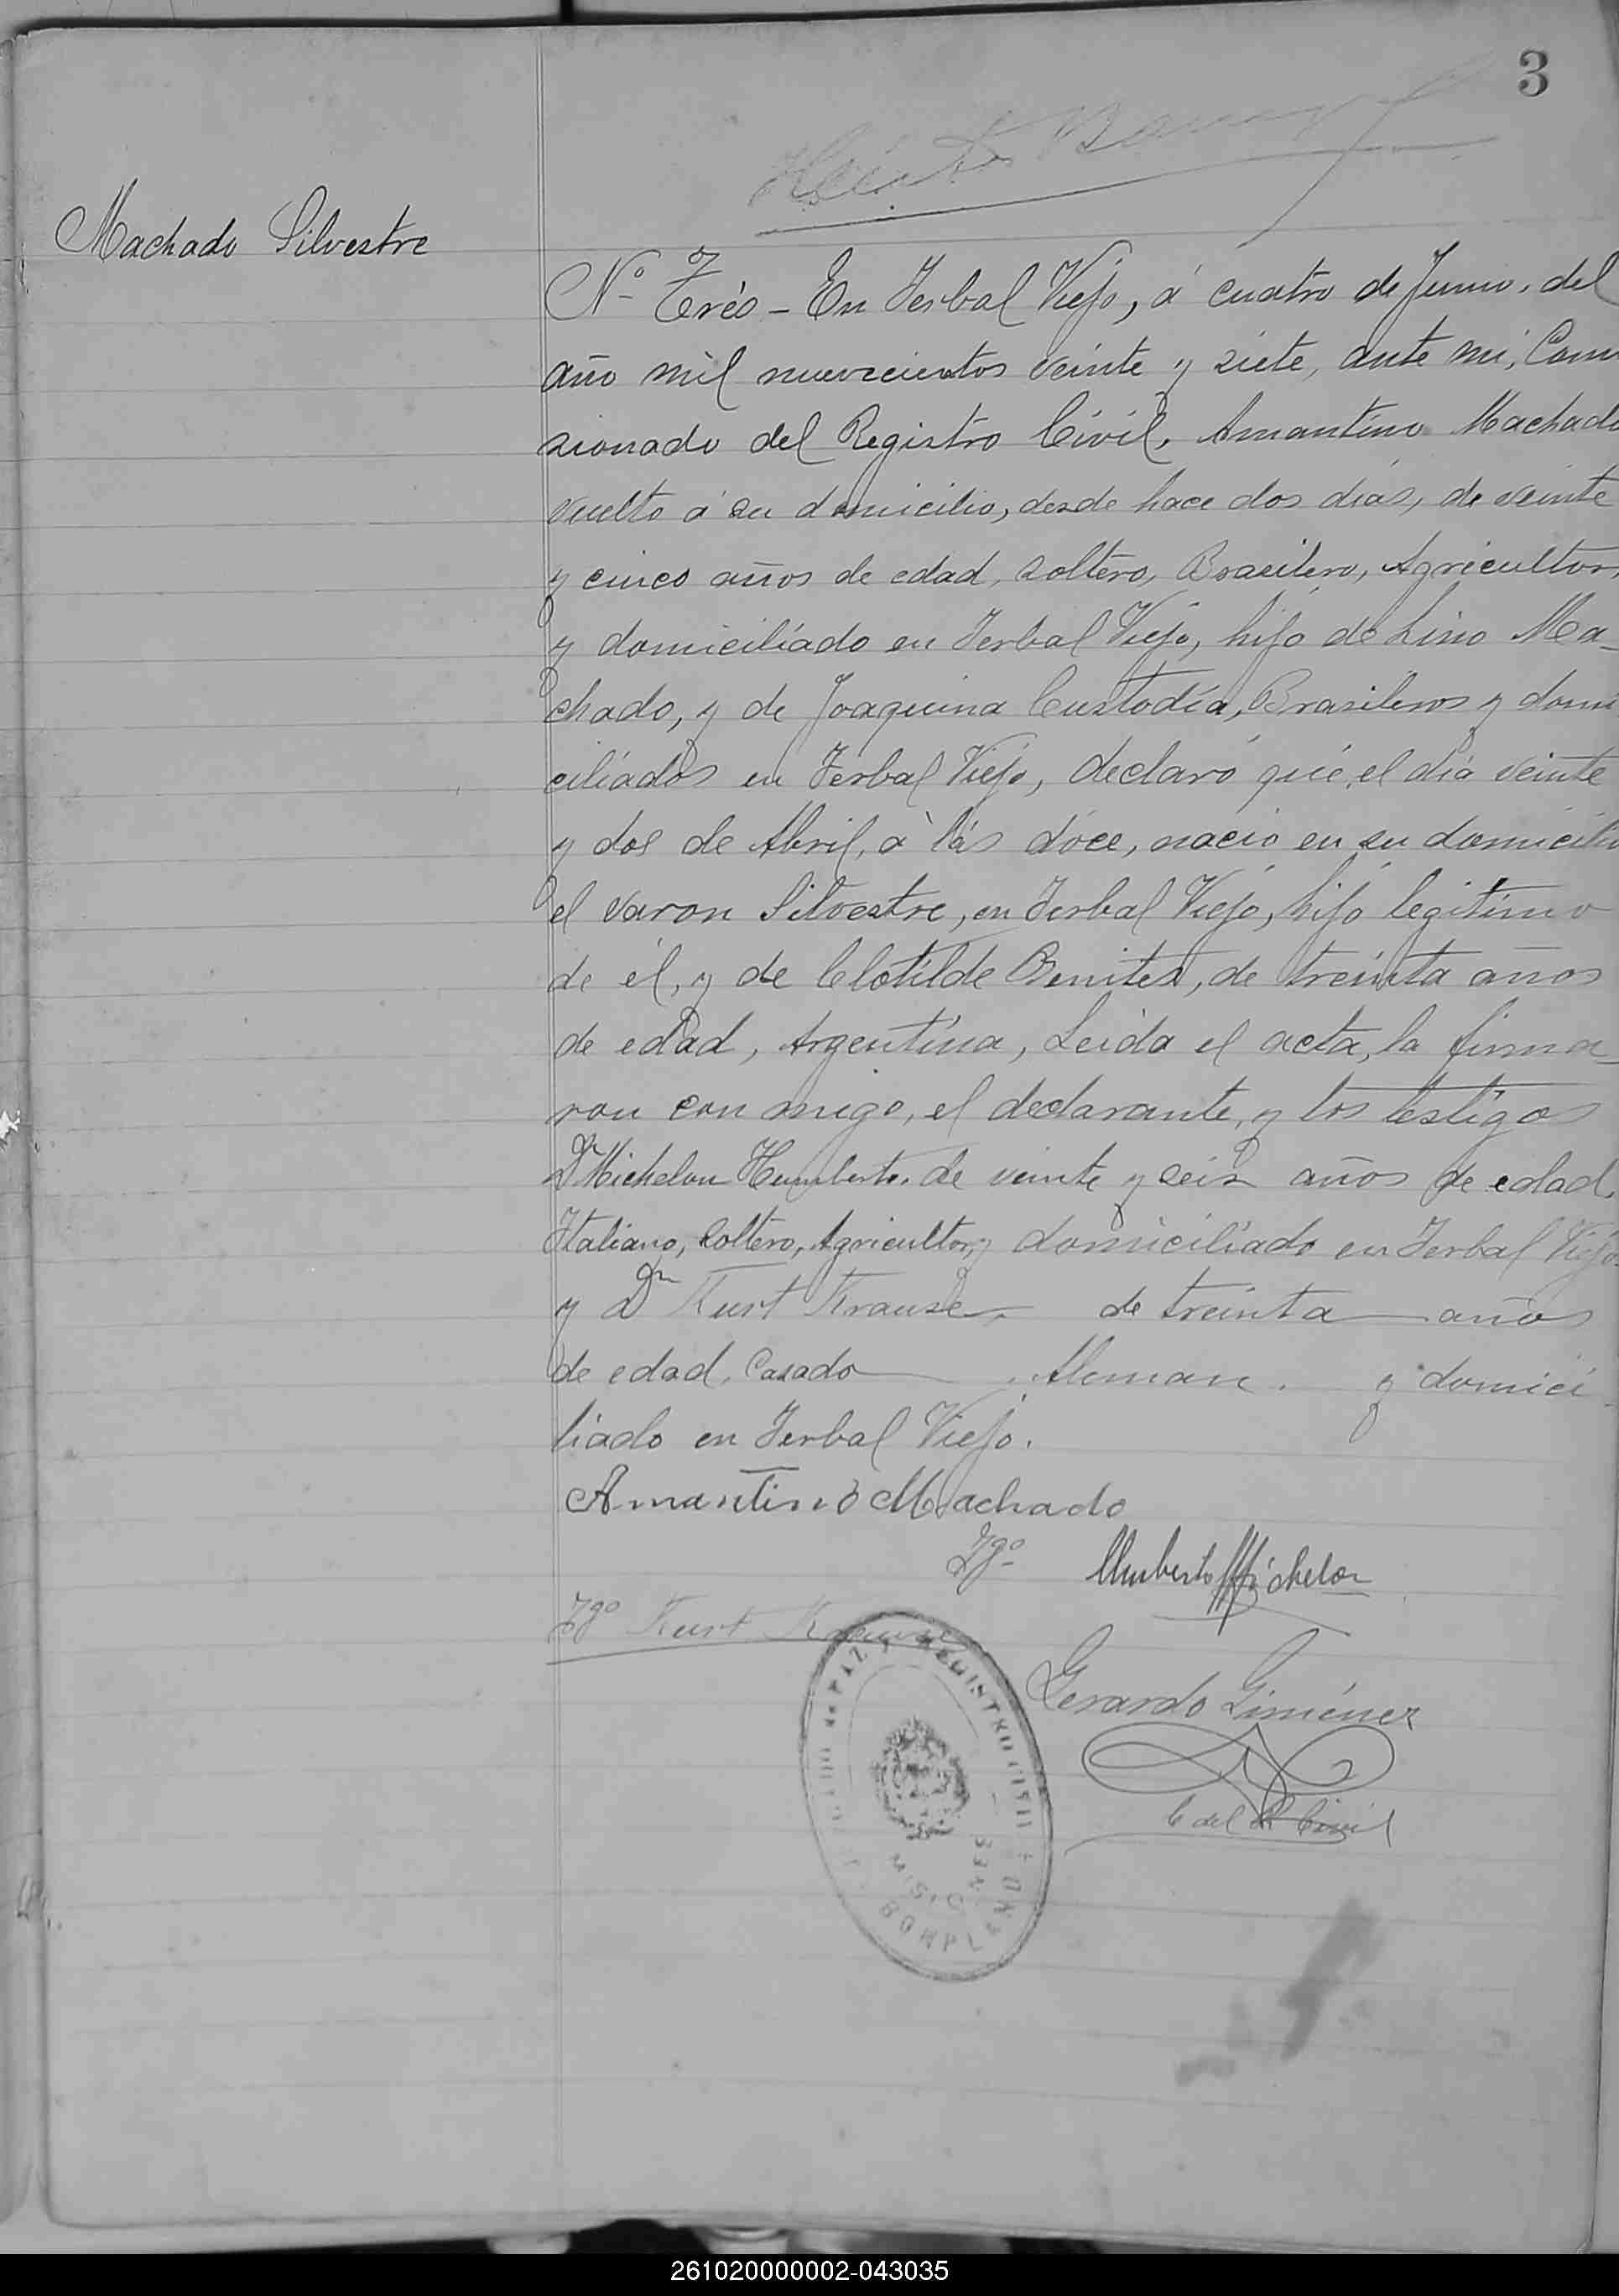 3
Machado Silvestre
Nº Trés - En Yerbal Viejo, á cuatro de Junio, del
año mil nuevecientos veinte y siete, ante mi, Comi
sionado del Registro Civil, Amantino Machado
vuelto á su domicilio, desde hace dos dias, de veinte
y cinco años de edad, soltero, Brasilero, Agricultor,
y domiciliado en Yerbal Viejo, hijo de Lino Ma-
chado, y de Joaquina Custodia, Brasileros y domi
ciliados en Yerbal Viejo, declaró que, el dia veinte
y dos de Abril, á las doce, nació en su domicilio
el varon Silvestre, en Yerbal Viejo, hijo legitimo
de él, y de Clotilde Benitez, de treinta años
de edad, Argentina, Leida el acta, la firma-
ron con migo, el declarante, y los testigos
Dn Michelon Humberto, de veinte y seis años de edad,
Italiano, Soltero, Agricultor, y domiciliado en Yerbal Viejo
y Dn Kurt Krause, de treinta años
de edad, Casado, Aleman, y domici
liado en Yerbal Viejo.
Amantino Machado
Tgo Umberto Michelon
Tgo Kurt Krause
Gerardo Giménez
C del R Civil
JUZGADO de PAZ y REGISTRO CIVIL
MISIONES
BONPLAND
261020000002-043035